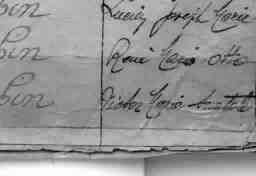 bin Lucien Joseph Marie
bin René Marie Otto
bin Victor Marie